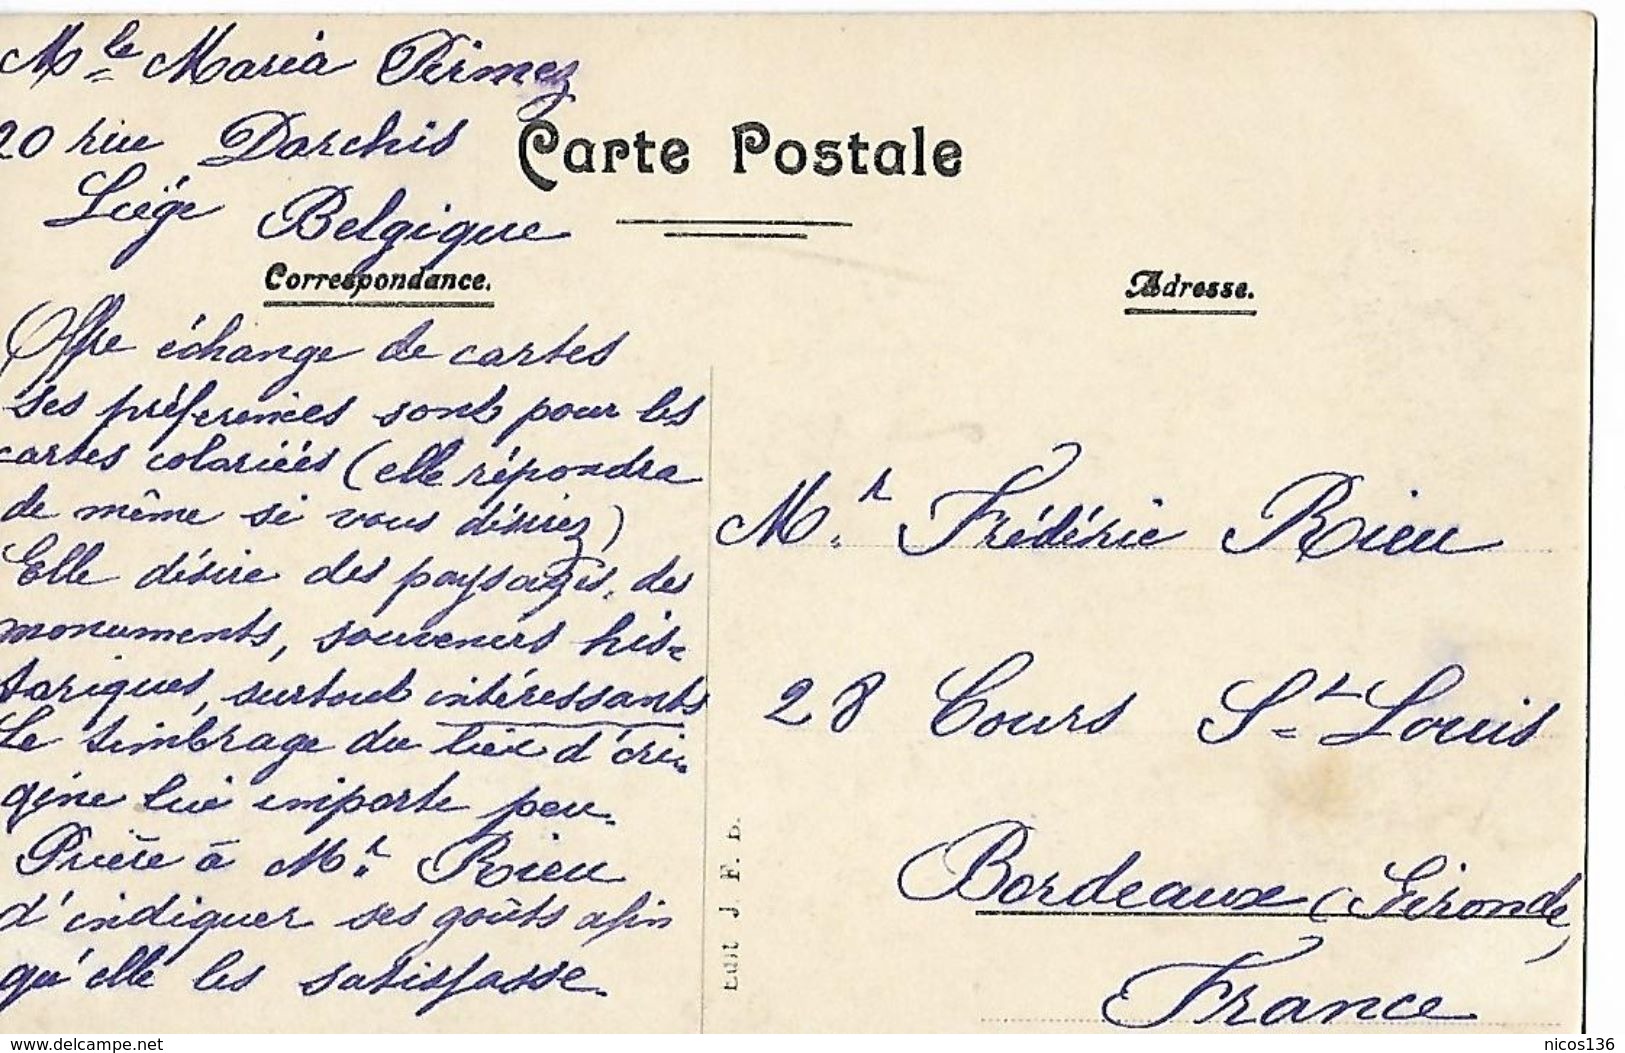 Mlle Maria Pirmez
20 rue Darchis
Liége Belgique
Carte Postale
Correspondance.
Adresse.
Offre échange de cartes
ses préferences sont pour les
cartes coloriées (elle répondra
de même si vous désirez)
Elle désire des paysages, des
monuments, souvenirs his-
toriques, surtout intéressants
Le timbrage du lieu d'ori-
gine lui importe peu.
Prière à Mr. Rieu
d'indiquer ses goûts afin
qu'elle les satisfasse.
Edit J. F. B.
Mr. Frédéric Rieu
28 Cours St Louis
Bordeaux (Gironde)
France
delcampe.net
nicos136